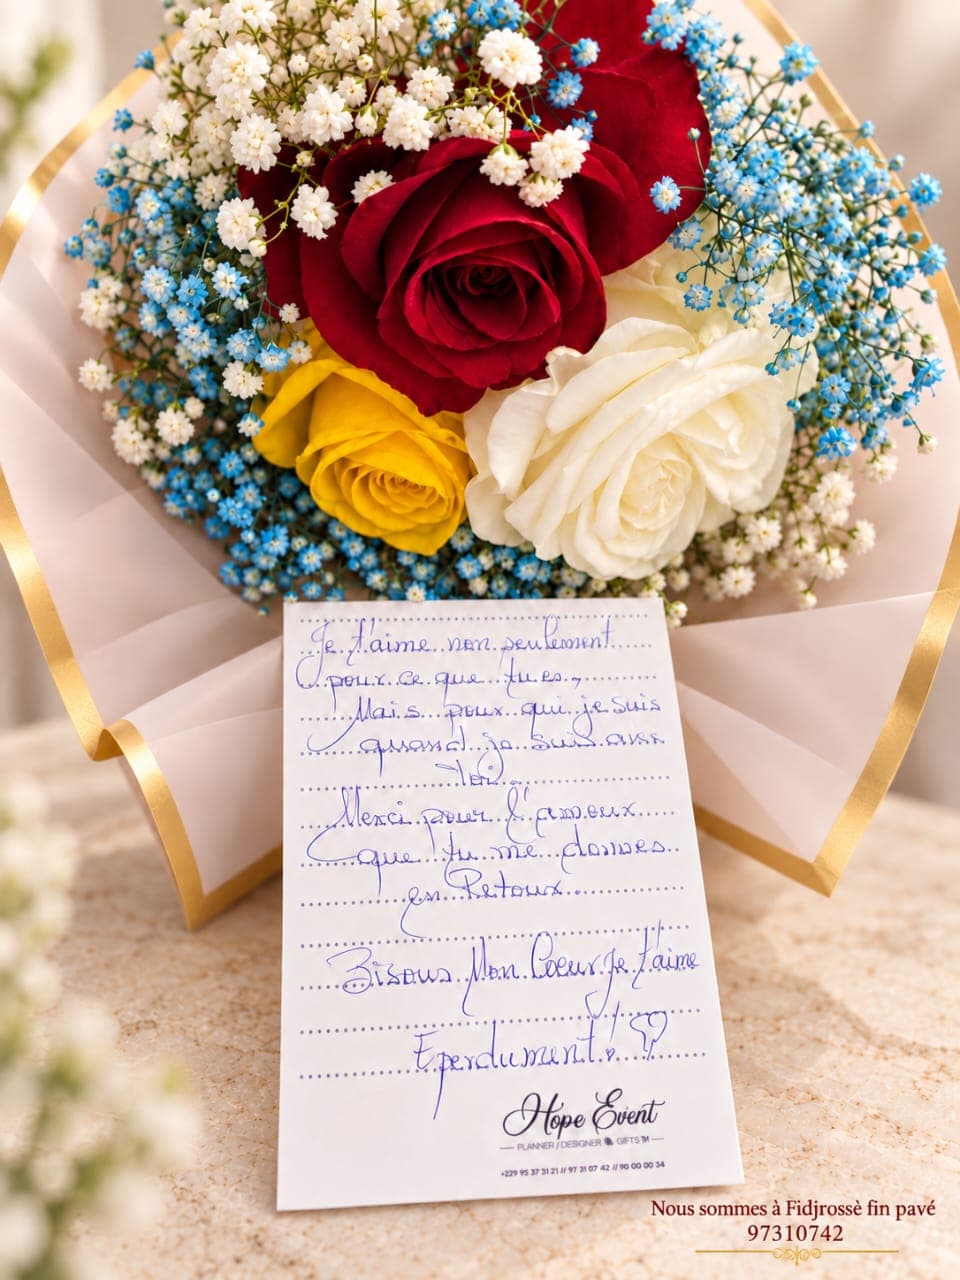 Je t'aime non seulement
pour ce que tu es,
Mais pour qui je suis
quand je suis avec
Toi.
Merci pour l'amour
que tu me donnes
en Retour.
Bisous Mon Coeur Je t'aime
Eperdument!
Hope Event
PLANNER / DESIGNER GIFTS TM
+229 95 37 31 21 // 97 31 07 42 // 90 00 00 34
Nous sommes à Fidjrossè fin pavé
97310742